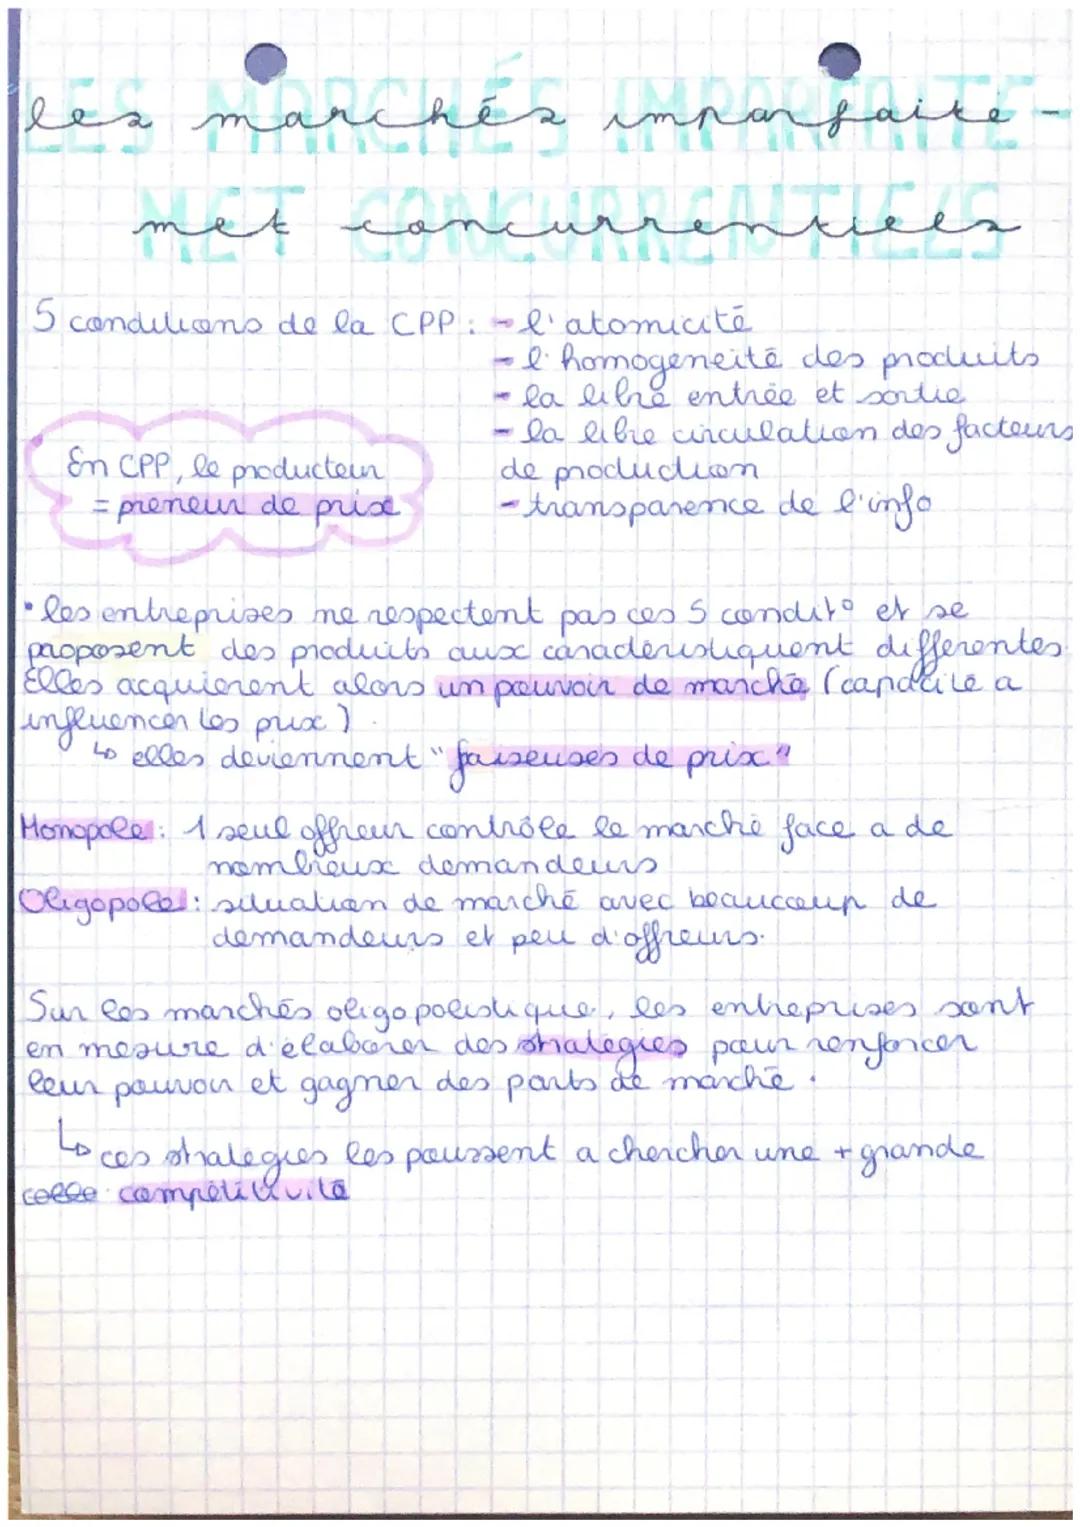 LES MARCHÉS IMPARFAITE-
les marchés imparfaite-
MET CONCURRENTIELS
met concurrentiels
5 conditions de la CPP : - l'atomicité
- l'homogeneité des produits
- la libre entrée et sortie
- la libre circulation des facteurs
de production
- transparence de l'info
En CPP, le producteur
= preneur de prix
• les entreprises ne respectent pas ces 5 condit° et se
proposent des produits aux caracteristiquent differentes.
Elles acquierent alors un pouvoir de marché (capacité a
influencer les prix).
↳ elles deviennent "faiseuses de prix"
Monopole : 1 seul offreur contrôle le marché face a de
nombreux demandeurs
Oligopole : situation de marché avec beaucoup de
demandeurs et peu d'offreurs.
Sur les marchés oligopolistique, les entreprises sont
en mesure d'élaborer des strategies pour renforcer
leur pouvoir et gagner des parts de marché.
↳ ces strategies les poussent a chercher une + grande
compétitivité